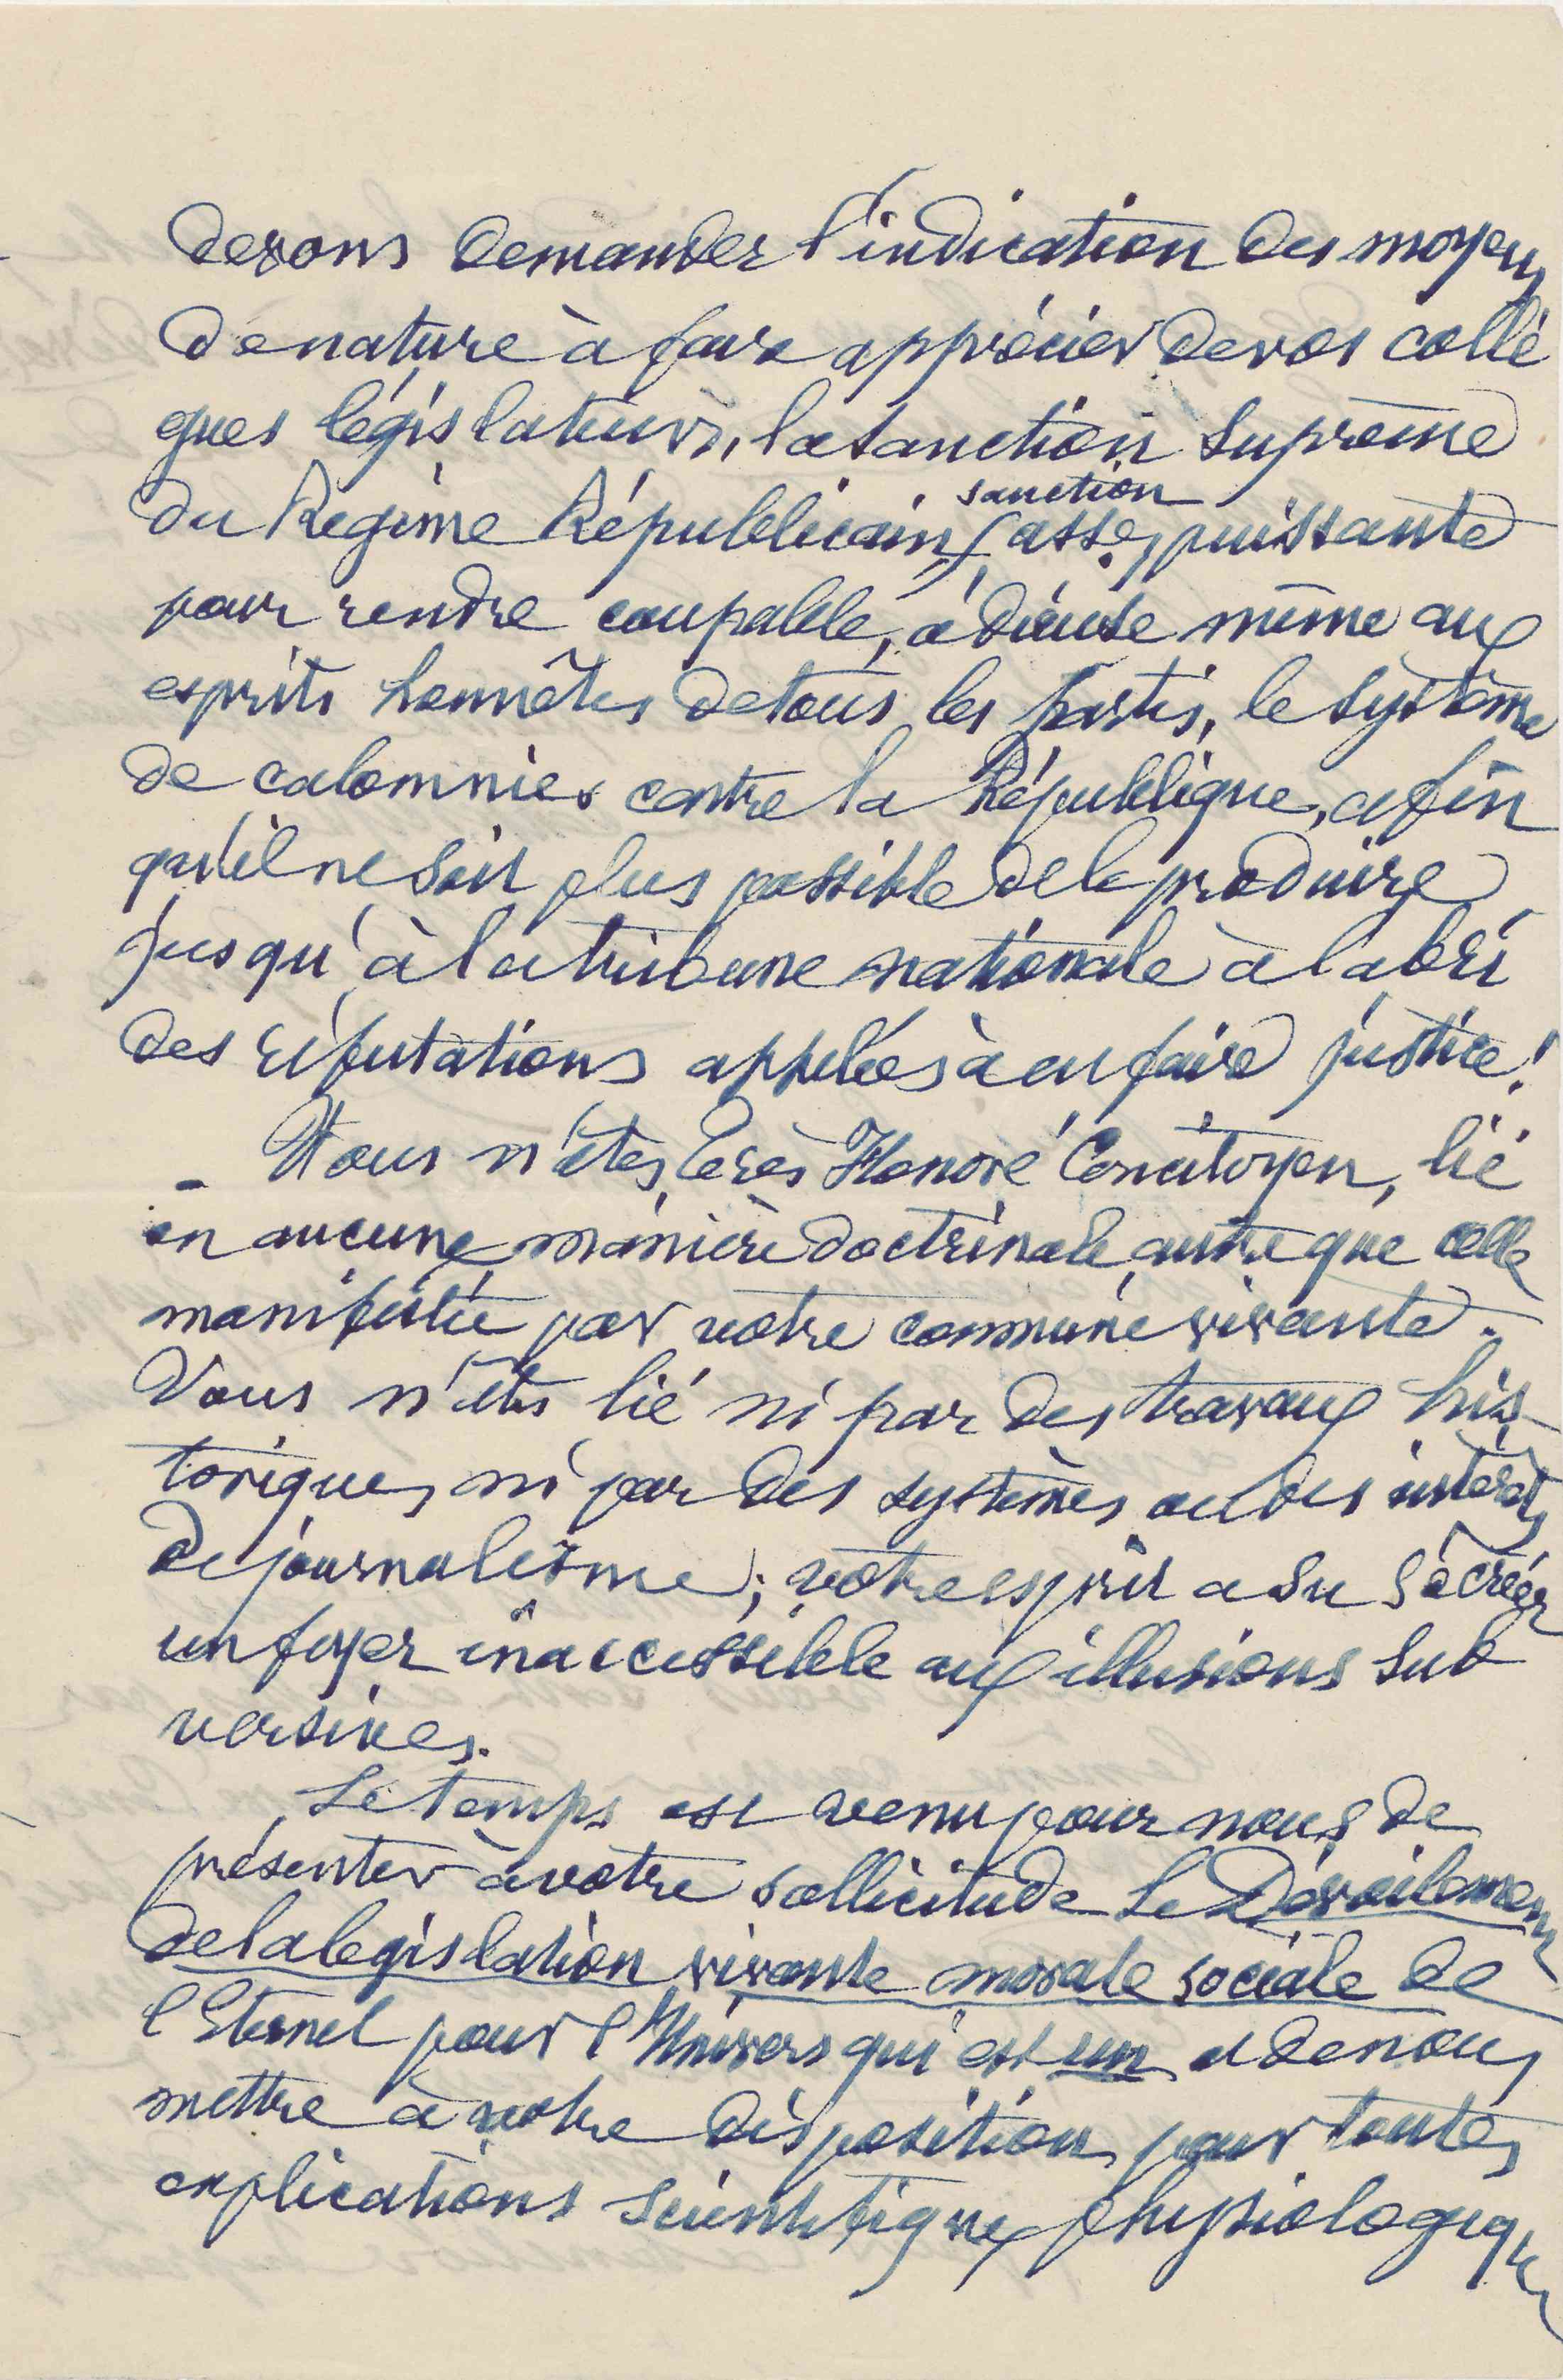 devons demander l'indication des moyens
de nature à faire apprécier de vos collè
gues législateurs, la sanction suprême
du Régime Républicain, sanction assez puissante
pour rendre coupable, odieuse même aux
esprits honnêtes de tous les partis, le système
de calomnies contre la République, afin
qu'il ne soit plus possible de le produire
jusqu'à la tribune nationale à l'abri
des réfutations appelées à en faire justice!
- Vous n'êtes, Très Honoré Concitoyen, lié
en aucune manière doctrinale, autre que celle
manifestée par votre commune vivante.
Vous n'êtes lié ni par des travaux his
toriques, ni par des systèmes ou des intérêts
de journalisme; votre esprit a su sécréer
un foyer inaccessible aux illusions sub
versives.
Le temps est venu pour nous de
présenter à votre sollicitude Le Dévoilement
de la législation vivante morale sociale de
l'Eternel pour l'Univers qui est un et de nous
mettre à votre disposition pour toutes
explications scientifiques physiologiques